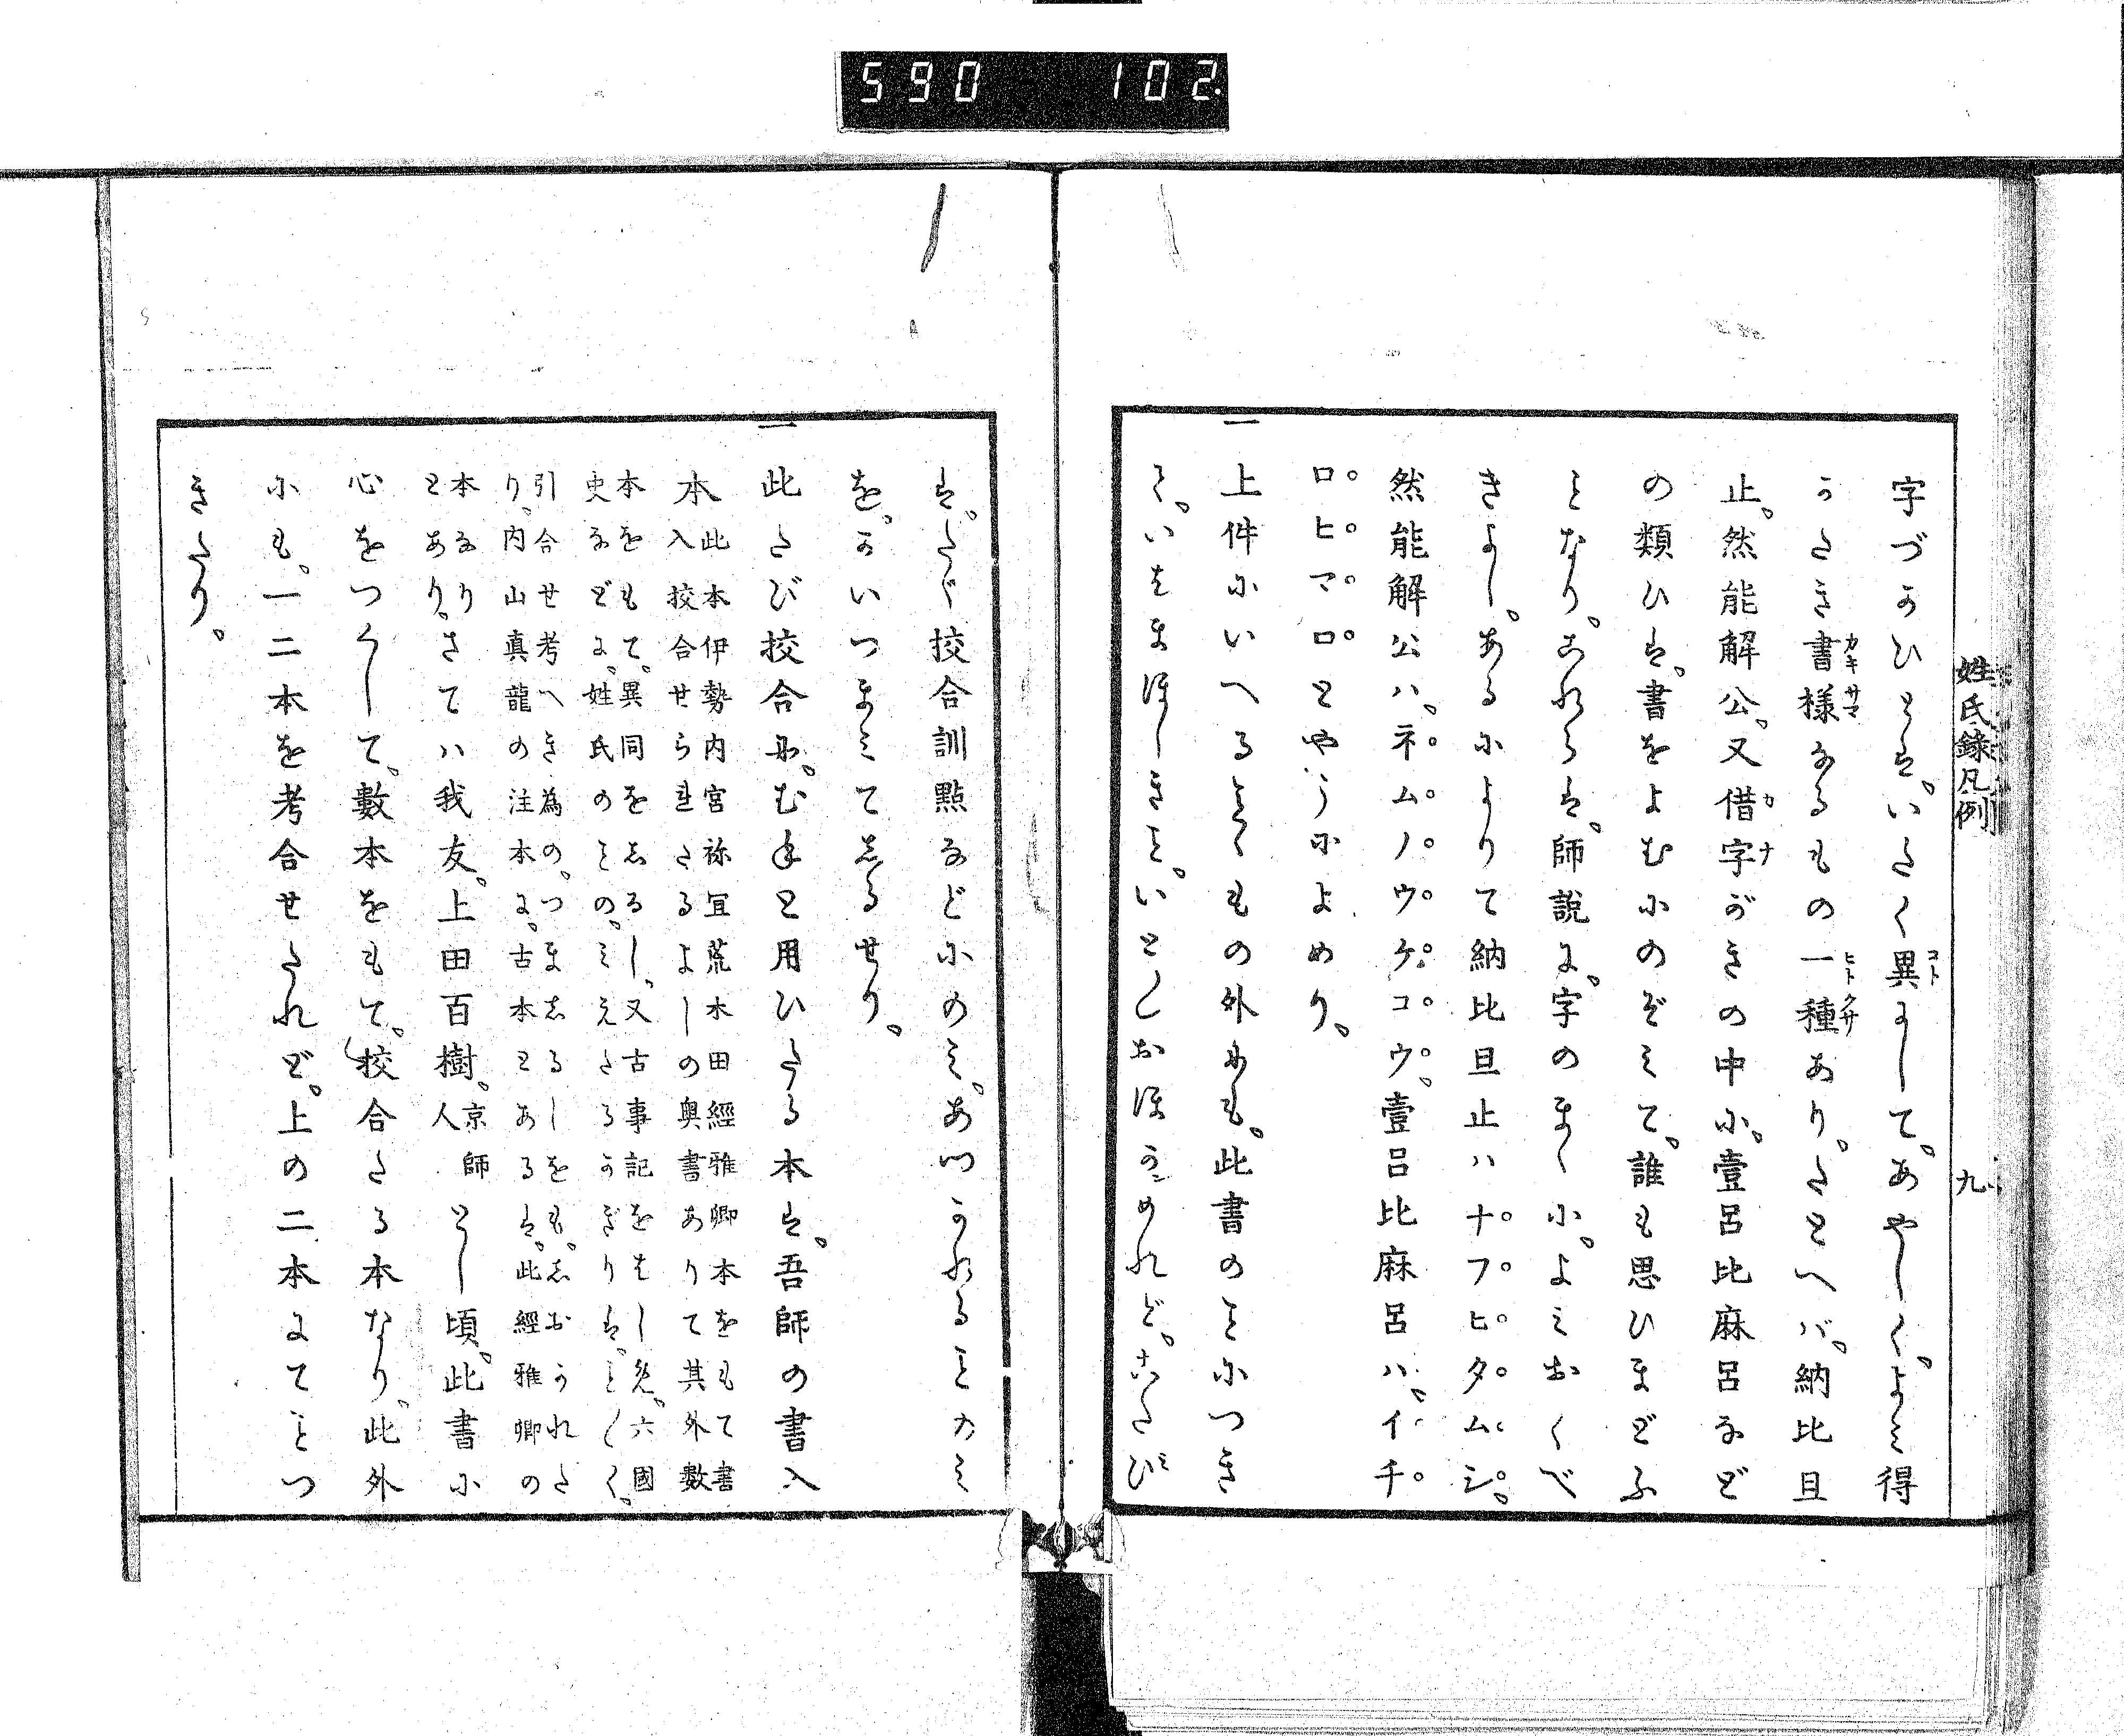 590 102.
姓氏録凡例 九
字づかひとは、いたく異にして、あやしく、よみ得
がたき書様なるもの一種あり、たとへバ、納比旦
止、然能解公、又借字がきの中に、壹呂比麻呂など
の類ひは、書をよむにのぞみて、誰も思ひまどふ
ことなり、これらは、師説に、字のまゝに、よみおくべ
きよし、あるによりて納比旦止ハナフヒタムシ、
然能解公ハ、ネムノウケコウ、壹呂比麻呂ハ、イチ
ロヒマロとやうによめり、
一上件にいへるごくもの外にも、此書のことにつき
て、いはまほしきこと、いとしおほかめれど、こたび
は、たゞ校合訓點などにのみ、あづかれることのみ
を、かいつまみてしるせり、
一此たび校合に、むねと用ひたる本は、吾師の書入
本此本伊勢内宮祢宜荒木田經雅卿本をもて書
入校合せられたるよしの奥書ありて其外數
本をもて、異同をしるし、又古事記をはじめ、六國
史などに、姓氏のことの、みえたるかぎりは、ことごとく、
引合せ考へき為の、つましるしをも、しおかれた
り、内山真龍の注本に、古本とあるは、此經雅卿の
本なり
とあり、さてハ我友、上田百樹、京師人とし頃、此書に
心をつくして、數本をもて、校合たる本なり、此外
にも、一二本を考合せたれど、上の二本にてことつ
きたり、